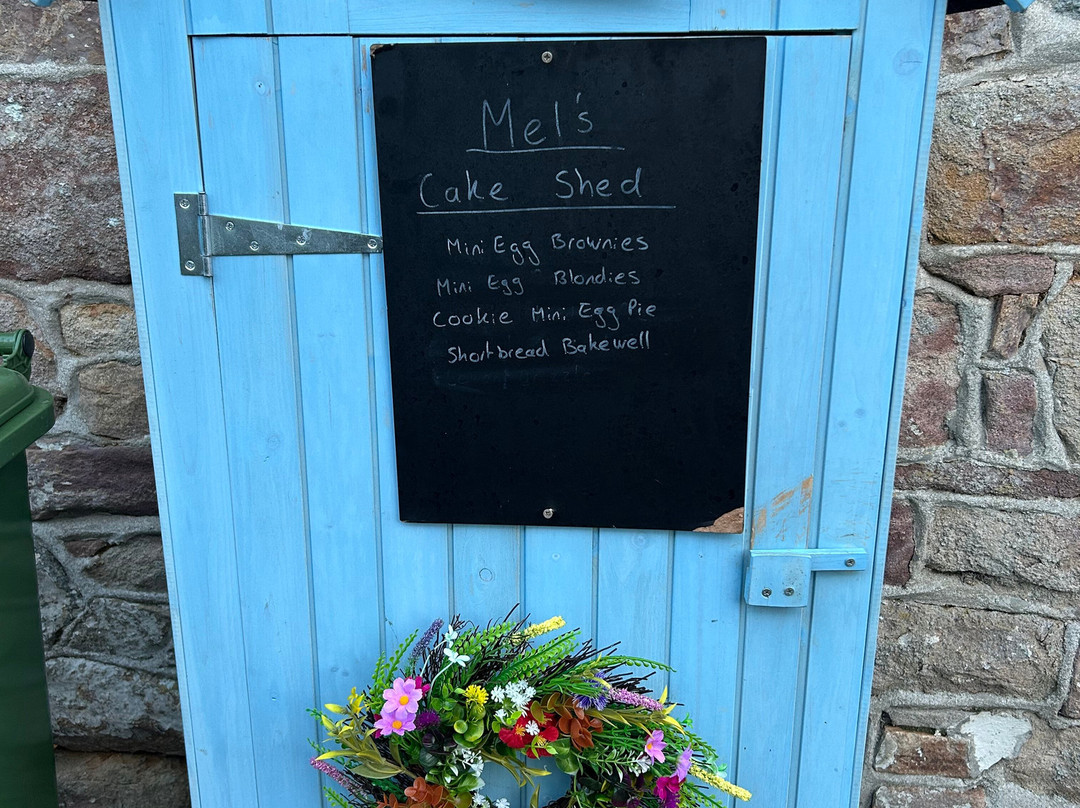 Mel's
Cake Shed
Mini Egg Brownies
Mini Egg Blondies
Cookie Mini Egg Pie
Shortbread Bakewell